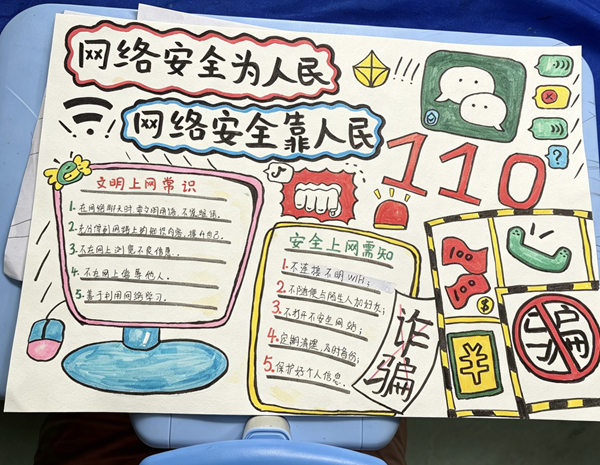 网络安全为人民
网络安全靠人民
110
文明上网常识
1.在网络聊天时,要文明用语,不说脏话。
2.充分借助网络上的知识内容,提升自己。
3.不在网上浏览不良信息。
4.不在网上侮辱他人。
5.善于利用网络学习。
安全上网需知
1.不连接不明WIFI;
2.不随便与陌生人加好友;
3.不打开不安全网站;
4.定期清理,及时备份;
5.保护好个人信息。
诈骗
$
¥
骗
?